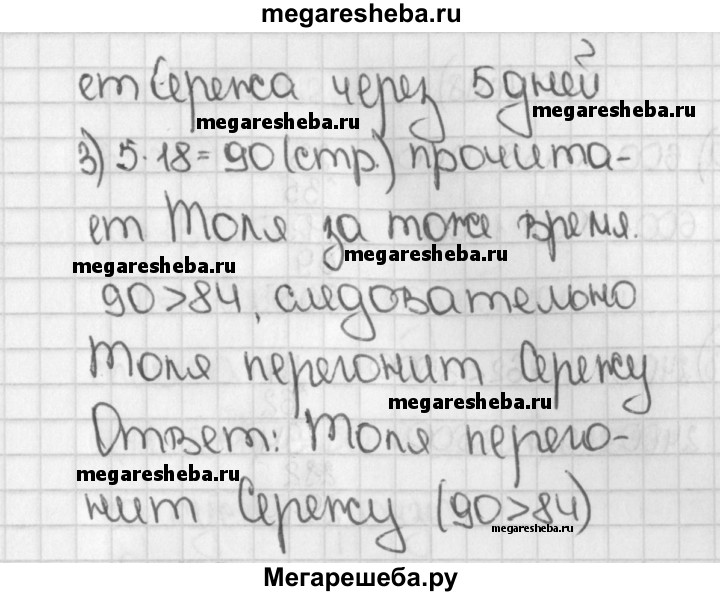 megaresheba.ru
ет Сережа через 5 дней
megaresheba.ru
megaresheba.ru
3) 5·18=90 (стр.) прочита-
ет Толя за тоже время.
megaresheba.ru
megaresheba.ru
90>84, следовательно
Толя перегонит Сережу
megaresheba.ru
Ответ: Толя перего-
megaresheba.ru
нит Сережу (90>84)
megaresheba.ru
Мегарешеба.ру